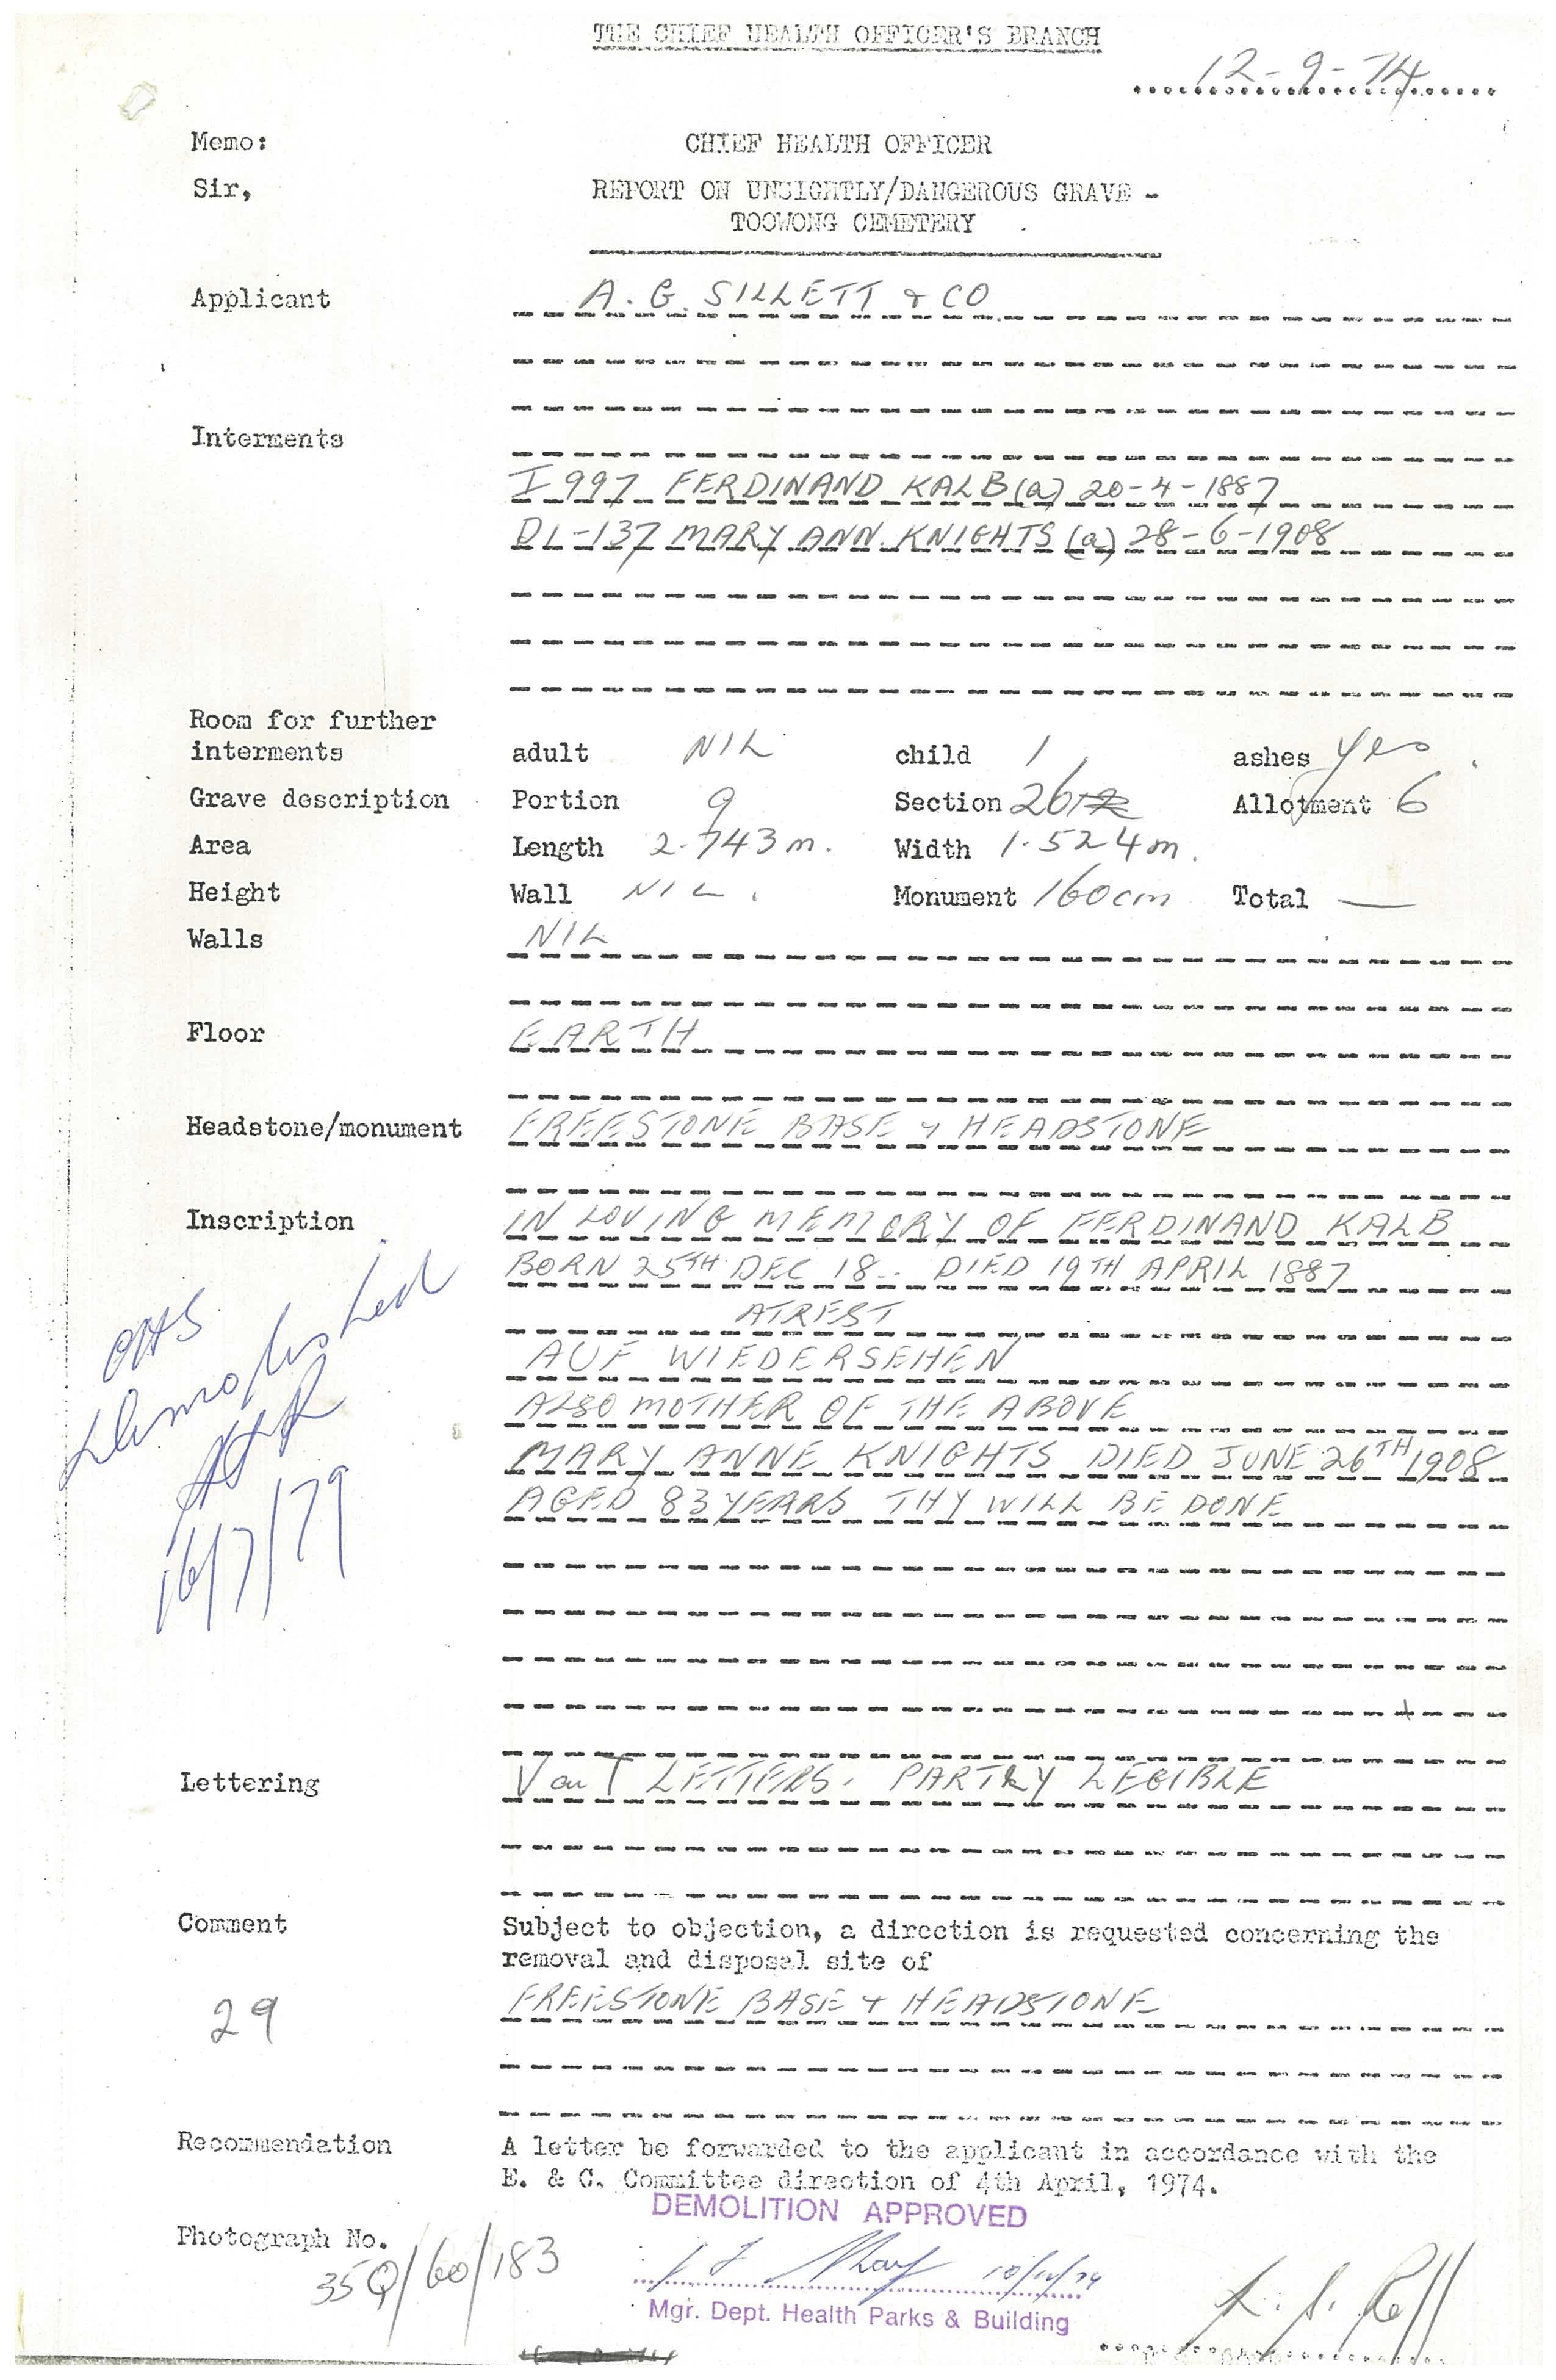 THE CHIEF HEALTH OFFICER'S BRANCH
12-9-74
Memo: CHIEF HEALTH OFFICER
Sir, REPORT ON UNSIGHTLY/DANGEROUS GRAVE -
TOOWONG CEMETERY
Applicant A. G. SILLETT & CO
Interments
I 997 FERDINAND KALB (a) 20-4-1887
DL-137 MARY ANN. KNIGHTS (a) 28-6-1908
Room for further
interments adult NIL child 1 ashes yes
Grave description Portion 9 Section 26 Allotment 6
Area Length 2.743m. Width 1.524m.
Height Wall NIL. Monument 160cm Total —
Walls NIL
Floor EARTH
Headstone/monument FREESTONE BASE & HEADSTONE
Inscription IN LOVING MEMORY OF FERDINAND KALB
BORN 25TH DEC 18.. DIED 19TH APRIL 1887
ATREST
AUF WIEDERSEHEN
ALSO MOTHER OF THE ABOVE
MARY ANNE KNIGHTS DIED JUNE 26TH 1908
AGED 83 YEARS THY WILL BE DONE
Demolished
16/7/79
Lettering V cut LETTERS. PARTLY LEGIBLE
Comment Subject to objection, a direction is requested concerning the
removal and disposal site of
29 FREESTONE BASE & HEADSTONE
Recommendation A letter be forwarded to the applicant in accordance with the
E. & C. Committee direction of 4th April, 1974.
DEMOLITION APPROVED
Photograph No.
35Q/60/183
Mgr. Dept. Health Parks & Building